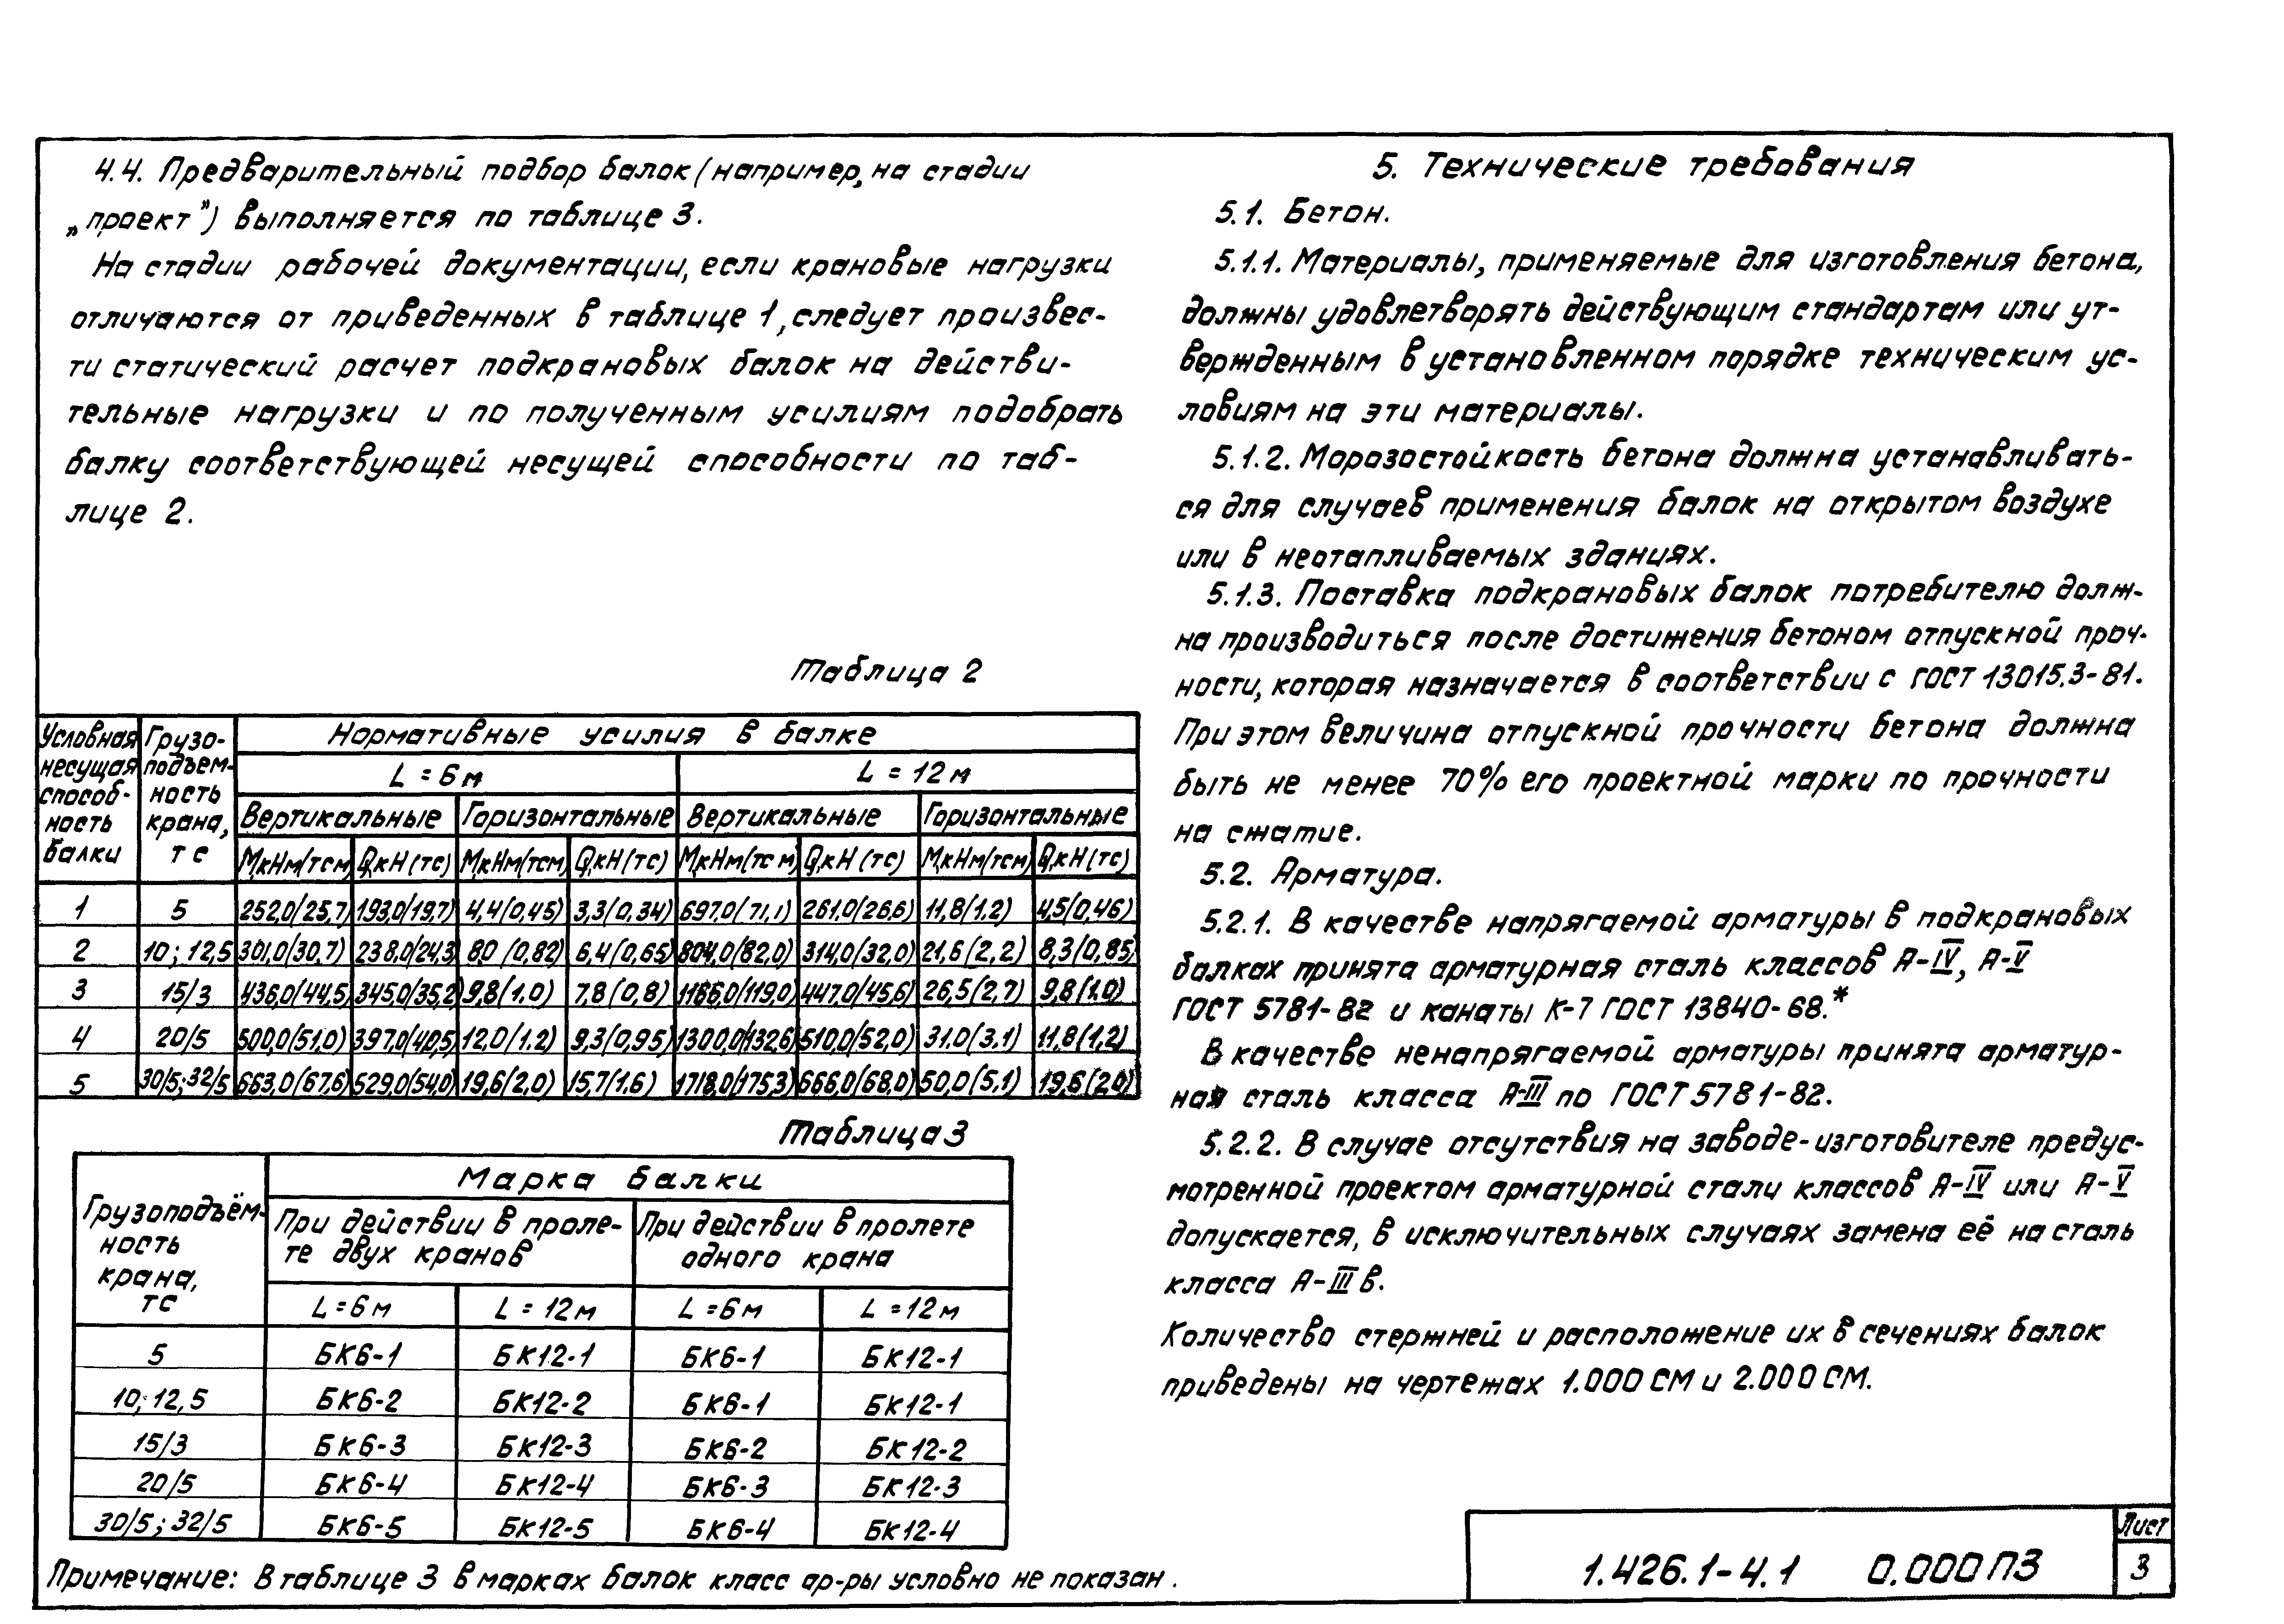 4.4. Предварительный подбор балок (например, на стадии
„проект") выполняется по таблице 3.
На стадии рабочей документации, если крановые нагрузки
отличаются от приведенных в таблице 1, следует произвес-
ти статический расчет подкрановых балок на действи-
тельные нагрузки и по полученным усилиям подобрать
балку соответствующей несущей способности по таб-
лице 2.
Таблица 2
Условная несущая способ-ность балки | Грузо-подъем-ность крана, тс | Нормативные усилия в балке
L = 6 м | L = 12 м
Вертикальные | Горизонтальные | Вертикальные | Горизонтальные
М,кНм(тсм) | Q,кН(тс) | М,кНм(тсм) | Q,кН(тс) | М,кНм(тсм) | Q,кН(тс) | М,кНм(тсм) | Q,кН(тс)
1 | 5 | 252,0(25,7) | 193,0(19,7) | 4,4(0,45) | 3,3(0,34) | 697,0(71,1) | 261,0(26,6) | 11,8(1,2) | 4,5(0,46)
2 | 10; 12,5 | 301,0(30,7) | 238,0(24,3) | 8,0 (0,82) | 6,4(0,65) | 804,0(82,0) | 314,0(32,0) | 21,6(2,2) | 8,3(0,85)
3 | 15/3 | 436,0(44,5) | 345,0(35,2) | 9,8(1,0) | 7,8(0,8) | 1166,0(119,0) | 447,0(45,6) | 26,5(2,7) | 9,8(1,0)
4 | 20/5 | 500,0(51,0) | 397,0(40,5) | 12,0(1.2) | 9,3(0,95) | 1300,0(132,6) | 510,0(52,0) | 31,0(3,1) | 11,8(1,2)
5 | 30/5; 32/5 | 663,0(67,6) | 529,0(54,0) | 19,6(2,0) | 15,7(1.6) | 1718,0(175,3) | 666,0(68,0) | 50,0(5,1) | 19,6(2,0)
Таблица 3
Грузоподъём-ность крана, тс | Марка балки
При действии в проле-те двух кранов | При действии в пролете одного крана
L = 6 м | L = 12 м | L = 6 м | L = 12 м
5 | БК6-1 | БК12-1 | БК6-1 | БК12-1
10; 12,5 | БК6-2 | БК12-2 | БК6-1 | БК12-1
15/3 | БК6-3 | БК12-3 | БК6-2 | БК12-2
20/5 | БК6-4 | БК12-4 | БК6-3 | БК12-3
30/5; 32/5 | БК6-5 | БК12-5 | БК6-4 | БК12-4
Примечание: В таблице 3 в марках балок класс ар-ры условно не показан.
5. Технические требования
5.1. Бетон.
5.1.1. Материалы, применяемые для изготовления бетона,
должны удовлетворять действующим стандартам или ут-
вержденным в установленном порядке техническим ус-
ловиям на эти материалы.
5.1.2. Морозостойкость бетона должна устанавливать-
ся для случаев применения балок на открытом воздухе
или в неотапливаемых зданиях.
5.1.3. Поставка подкрановых балок потребителю долж-
на производиться после достижения бетоном отпускной проч-
ности, которая назначается в соответствии с ГОСТ 13015.3-81.
При этом величина отпускной прочности бетона должна
быть не менее 70% его проектной марки по прочности
на сжатие.
5.2. Арматура.
5.2.1. В качестве напрягаемой арматуры в подкрановых
балках принята арматурная сталь классов А-IV, А-V
ГОСТ 5781-82 и канаты К-7 ГОСТ 13840-68.*
В качестве ненапрягаемой арматуры принята арматур-
ная сталь класса А-III по ГОСТ 5781-82.
5.2.2. В случае отсутствия на заводе-изготовителе предус-
мотренной проектом арматурной стали классов А-IV или А-V
допускается, в исключительных случаях замена её на сталь
класса А-III в.
Количество стержней и расположение их в сечениях балок
приведены на чертежах 1.000 СМ и 2.000 СМ.
1.426.1-4.1 0.000ПЗ
Лист
3